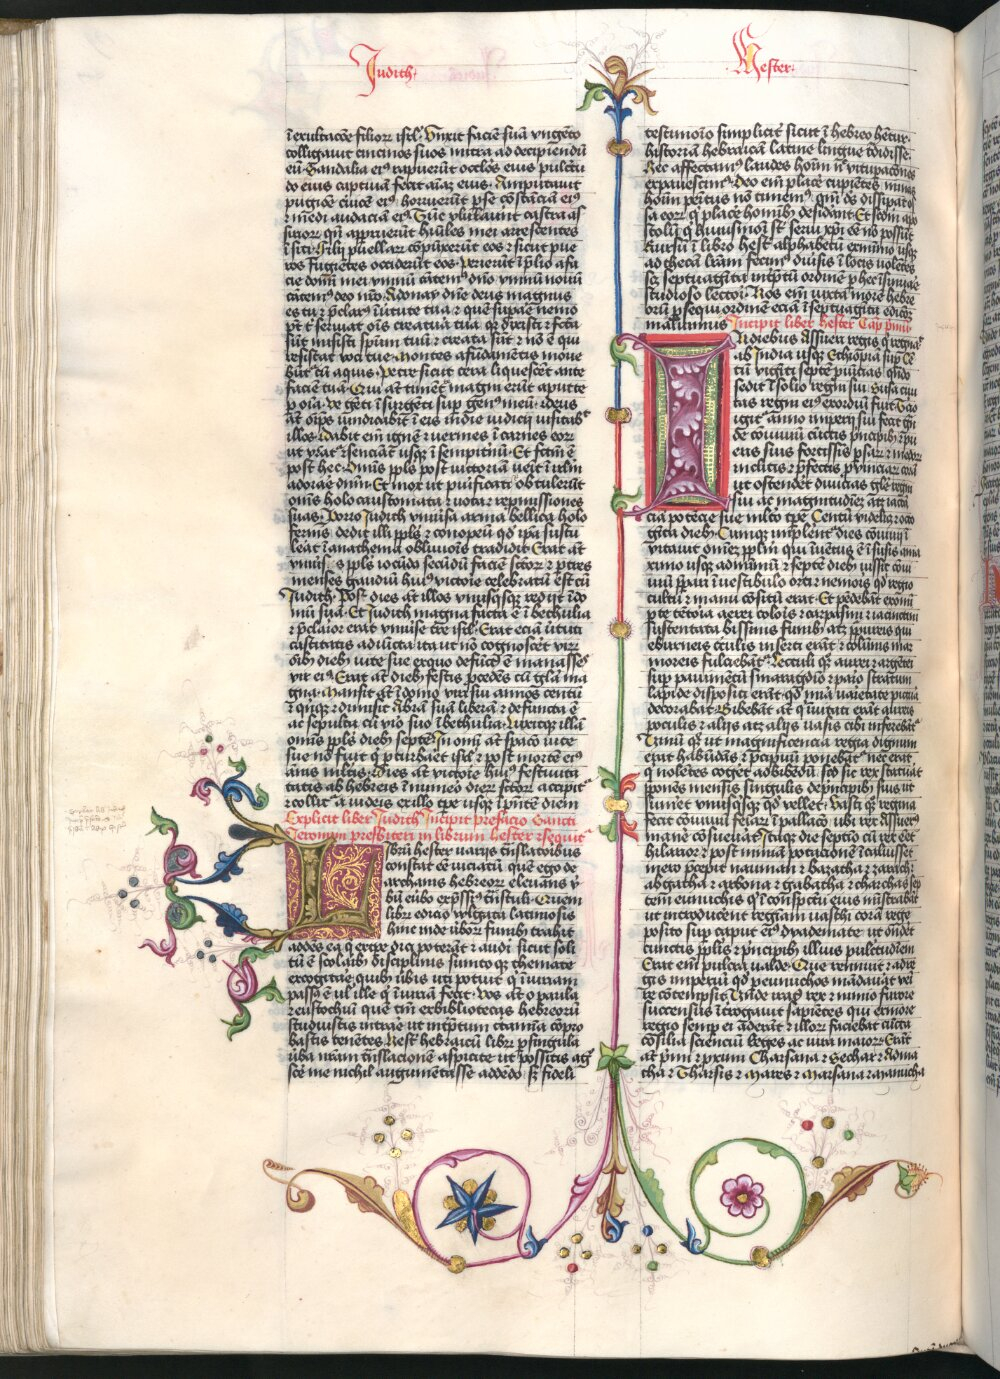 Judith
Hester
ī exultacōe filioꝝ isrl̄. Vnxit faciē suā vngēto
colligauit cincinos suos mitra ad decipiendū
eū. Sandalia eiꝰ rapuerūt occl̓os eius pulctu
do eius captiuā fecit aīaꝫ eius. Amputauit
pugiōe
horruerūt ꝑse cōstāciā eiꝰ
⁊ medi audaciā eiꝰ. Tūc vlulauūt castra as
sirioꝝ qn̄ apparuerūt hūiles mei arescentes
ī siti. Filij puellaꝝ cōpūxerūt eos ⁊ sicut pue
ros fugiētes occiderūt eos. perierūt ī p̄lio a fa
cie domī mei ymnū cātemꝰ dn̄o ymnū nouū
cātemꝰ deo nr̄o. Adonay dn̄e deus magnus
es tu ⁊ p̄clarꝰ ī v̓tute tua ⁊ quē supaē nemo
pōt t̓ seruiāt oīs creatura tua qꝛ dixisti ⁊ fcā
sūt misisti spm̄ tuū ⁊ creata sūt ⁊ nō ē qui
resistat voci tue. Montes a fūdamētis moue
būt̓ cū aquis. Petre sicut cera liquescēt ante
faciē tuā. Qui aūt timēt te magni erūt apud te
ꝑ oīa. Ve gēti īsurgēti sup genꝰ meū. deus
aūt oīps vindicabit ī eis in die iudicij visitabit
illos. dabit em̄ ignē ⁊ vermes ī carnes eoꝝ
ut vrāt̓ ⁊ senciāt usqꝫ ī sempitnū. Et fcm̄ ē
post hec. Omīs ppl̄s post victoriā veīt ī irlm̄
adorare dn̄m. Et mox ut puificati obtulerūt
omīs holocaustomata ⁊ vota ⁊ repmissiones
suas. Porro Judith vniusa arma bellica holo
fernis dedit illi ppl̄s ⁊ conopeū qd̓ ip̄a sustu
leāt ī anathema obliuiōīs tradidit. Erat aūt
ppl̄s iocūdꝰ secūdū faciē scōꝝ ⁊ ꝑ tres
menses gaudiū huiꝰ victorie celebratū ē cū
Judith. Post dies aūt illos vnusqsqꝫ rediit ī do
mū suā. Et Judith magna facta ē ī bethulia
⁊ p̄claior erat vniuse tr̄e isrl̄. Erat eciā v̓tuti
castitatis adiūcta ita ut nō cognoscēt virū
oīb dieb vite sue ex quo defūctꝰ ē manasses
vir eiꝰ. Erat aūt dieb festis p̄cedēs cū gl̄ia ma
gna. Mansit aūt ī domo viri sui annos centū
⁊ quīqꝫ ⁊ dimisit Abrā suā liberā ⁊ defuncta ē
ac sepulta cū viro suo ī bethulia. Luxitqꝫ illā
omīs ppl̄s dieb septē. In omī aūt spacō vite
sue nō fuit q̓ ꝑturbaēt isrl̄ ⁊ post mortē eiꝰ
ānis mltis. dies aūt victorie huiꝰ festiuita
tatis ab hebreis ī numeo dieꝝ scōꝝ accipit̓
⁊ colit̓ a iudeis ex illo tꝑe usqꝫ ī pn̄tē diem
Explicit liber Judith Incipit prefacio Sancti
Jeronimi presbiteri in librum hester ⁊ sequit̓
Librū hester variis trāslatoribus
constat eē viciatū quē ego de
archanis hebreoꝝ eleuans v̓
bū e v̓bo exp̄ssiꝰ trāstuli. Quem
libꝝ edicio vulgata laciniosis
hinc inde v̓boꝝ funib trahit
addēs ea q̄ ex tꝑe dici poterāt ⁊ audi sicut soli
tū ē scolarib disciplinis sumto qꝫ themate
excogitare quib v̓bis uti potuit q̓ īiuriam
passꝰ ē ul̓ ille q̓ īiuriā fecit. Vos aūt o paula
⁊ eustochiū quē cm̄ ex bibliotecas hebreoꝝ
studuistis intrare ut int̓ptum ctamīa cōpro
bastis tenētes hest̓ hebraicū librū ꝑ singula
v̓ba nr̄am trāslacionē aspicite ut possitis ag
scē me nichil augmentasse addēdo sꝫ fideli
testimoīo simplicit̓ sicut ī hebreo hēt̓ur
historiā hebraicā latine lingue tdidisse
Nec affectamꝰ laudes hoīm n̄ vitupacōnes
expauescimꝰ. Deo em̄ placē cupiētes minas
hoīm penitus nō timemꝰ. qm̄ dꝰs dissipat os
sa eoꝝ q̓ placē hoīnib desidānt. Et scdm̄ apo
stolū q̓ huiusmōi st̄ serui xpī eē nō possūt
Rursū ī libro hest̓ alphabetū ex mīno usqꝫ
ad thetā lr̄am fecimꝰ diūsis ī locis volētes
scꝫ septuagīta int̓ptū ordinē ꝑ hec īsinuae
studioso lectori. Nos em̄ iuxta morē hebre
oꝝ ꝑsequi ordinē eciā ī septuagīta edicōe
maluimus Incipit liber hester Cap pm̄
In diebus Assueri regis q̓ regnāt
ab india usqꝫ Ethiopiā sup Cē
tū viginti septē puīcias qn̄do
sedit ī solio regni sui. Susa ciui
tas regni eiꝰ exordiū fuit. Tercio
igit̓ anno imperij sui fecit grā
de cōuiuiū cūctis p̄ncipib ⁊ pu
eris suis fortissis psaꝝ ⁊ medoꝝ
inclitis ⁊ p̄fectis puinciaꝝ corā
se ut ostendēt diuicias gl̄e regni
sui ac magnitudinē atqꝫ iactā
ciā potēcie sue mlto tꝑe Centū videlicꝫ octo
gīta dieb. Cumqꝫ implent̓ dies cōuiuij ī
uitauit omēꝫ pplm̄ qui īuētus ē ī susis a ma
ximo usqꝫ ad mīmū ⁊ septē dieb iussit cōui
uiū p̄pari ī vestibulo orti ⁊ nemoris qd̓ regio
cultu ⁊ manu cōsitū erat. Et pēdebāt ex omi
ꝑte tētoia aerei coloīs ⁊ carpasini ⁊ iacinctini
sustentata bissinis funib atqꝫ ppureis qui
eburneis cīculis inserti erāt ⁊ colūnis mar
moreis fulciebāt̓. Lectuli qꝫ aurei ⁊ argētei
sup pauimētū smaragdio ⁊ pario stratum
lapide dispositi erāt. qd̓ mirā vaietate pictura
decorabat. Bibebāt aūt q̓ īuitati erāt aureis
poculis ⁊ alijs atqꝫ alijs vasis cibi inferebāt̓
Vinū qꝫ ut magnificencia regia dignum
erat habūdās ⁊ p̄cipuū ponebat̓ nec erat
q̓ nolētes cogēt ad bibēdū. sꝫ sic rex statuāt
p̄ponēs mensis singulis de p̄ncipib suis ut
sumēt vnusqsqꝫ qd̓ vellet. Vasti qꝫ regina
fecit cōuiuiū feīaꝝ ī pallacō ubi rex assuerꝰ
manē cōsueuāt. Itaqꝫ die septīo cū rex eēt
hilarior ⁊ post nimiā potacionē ī caluisset
mero p̄cepit nauman ⁊ baracha ⁊ zarath
abgatha ⁊ arbona ⁊ gabatha ⁊ charchas sep
tem eunuchis q̓ ī cōspectu eius mīstrabāt
ut introducēnt reginam vasthi corā rege
posito sup caput eiꝰ dyademate ut ōndēt
cunctis ppl̄is ⁊ p̄ncipib illius pulcitudinem
Erat em̄ pulcra valde. Que rennuit ⁊ ad re
gis imperiū qd̓ ꝑ eunuchos mādauāt ve
re cōtempsit. Vnde iratꝰ rex ⁊ nimio furore
succensus īterogauit sapiētes qui ex more
regio semꝑ ei aderāt ⁊ illoꝝ faciebat cūcta
cōsilia scienciū leges ac iura maioꝝ. Erāt
aūt pīmi ⁊ pximi Charsana ⁊ Sechar ⁊ Adma
tha ⁊ Tharsis ⁊ Mares ⁊ Marsana ⁊ Manucha